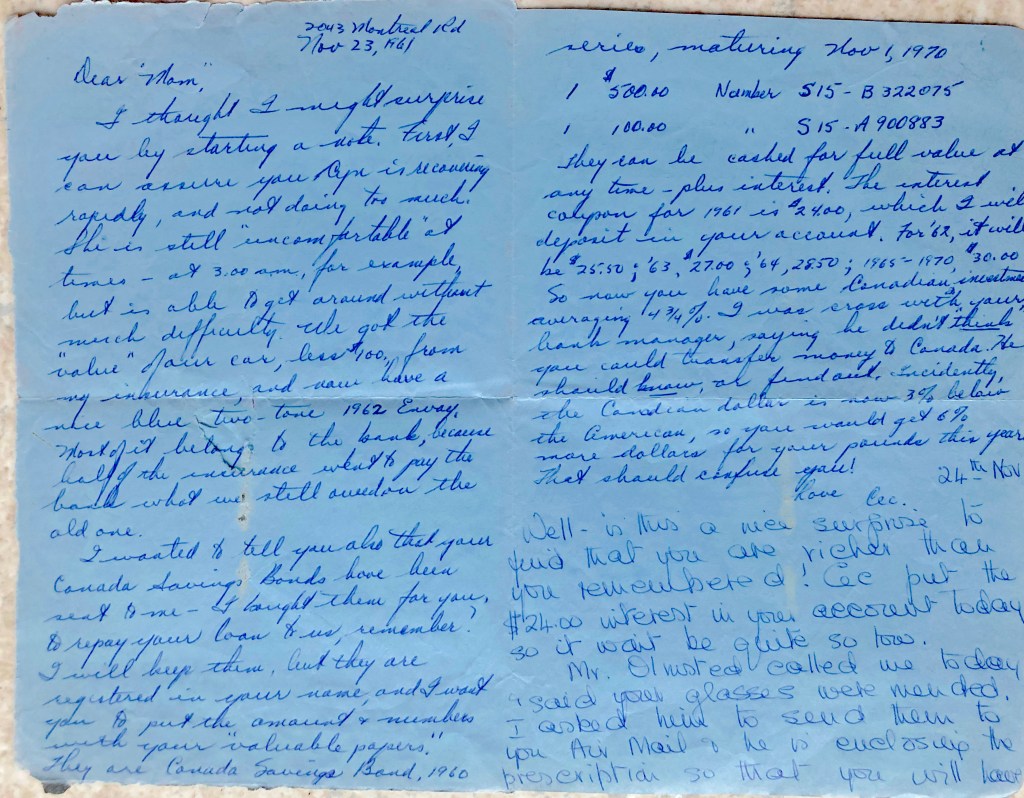 2043 Montreal Rd
Nov 23, 1961
Dear "Mom",
I thought I might surprise
you by starting a note. First, I
can assure you is recovering
rapidly, and not doing too much.
She is still "uncomfortable" at
times – at 3.00 a.m., for example,
but is able to get around without
much difficulty. We got the
"value" of our car, less $100, from
my insurance, and now have a
nice blue two-tone 1962 Envoy.
Most of it belongs to the bank, because
half of the insurance went to pay the
bank what we still owed on the
old one.
I wanted to tell you also that your
Canada Savings Bonds have been
sent to me – I bought them for you,
to repay your loan to us, remember?
I will keep them, but they are
registered in your name, and I want
you to put the amount & numbers
with your "valuable papers."
They are Canada Savings Bond, 1960
series, maturing Nov 1, 1970
1 $500.00 Number S15 - B 322075
1 100.00 " S15 - A 900883
They can be cashed for full value at
any time – plus interest. The interest
coupon for 1961 is $24.00, which I will
deposit in your account. For '62, it will
be $25.50; '63, $27.00; '64, 28.50; 1965-1970, $30.00
So now you have some Canadian investments
averaging 4 3/4 %. I was cross with your
bank manager, saying he didn't "think"
you could transfer money to Canada. He
should know, or find out. Incidently,
the Canadian dollar is now 3% below
the American, so you would get 6%
more dollars for your pounds this year
That should confuse you!
Love Cec.
24th Nov
Well - is this a nice surprise to
find that you are richer than
you remembered! Cec put the
$24.00 interest in your account today
so it won't be quite so low.
Mr. Olmsted called me today
& said your glasses were mended.
I asked him to send them to
you Air Mail & he is enclosing the
prescription so that you will have